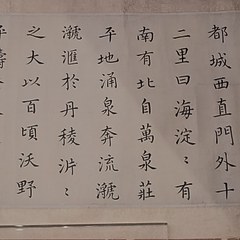 都城西直門外十
二里曰海淀〻有
南有北自萬泉莊
平地涌泉奔流㶁
㶁滙於丹稜沜〻
之大以百頃沃野
平疇